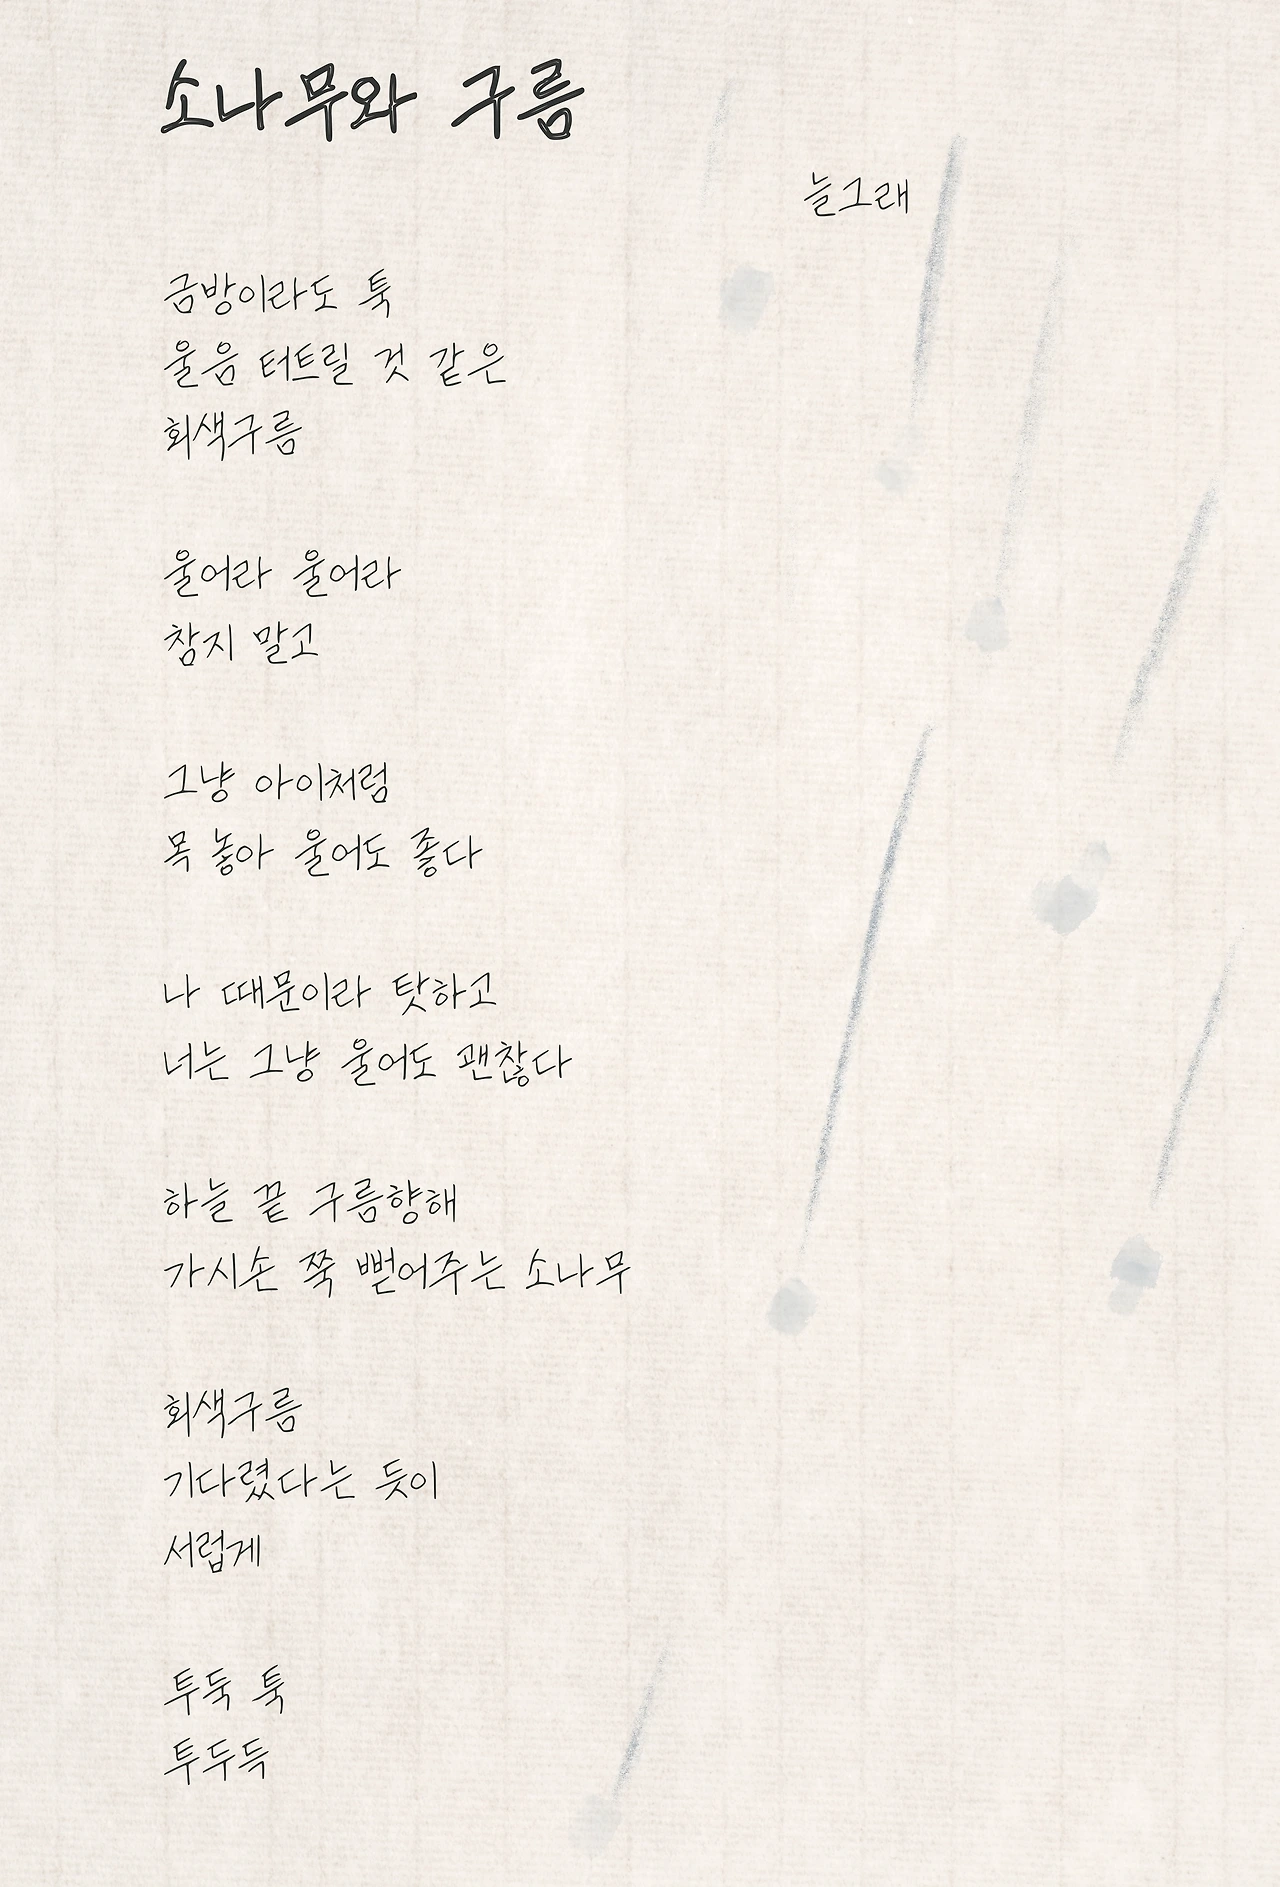 소나무와 구름
늘그래
금방이라도 툭
울음 터트릴 것 같은
회색구름
울어라 울어라
참지 말고
그냥 아이처럼
목 놓아 울어도 좋다
나 때문이라 탓하고
너는 그냥 울어도 괜찮다
하늘 끝 구름향해
가시손 쭉 뻗어주는 소나무
회색구름
기다렸다는 듯이
서럽게
투둑 툭
투두득